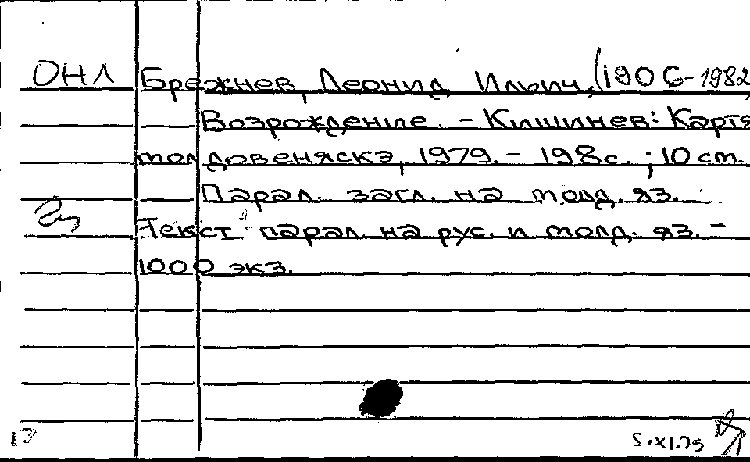 ОНЛ Брежнев, Леонид Ильич, (1906-1982
Возрождение. - Кишинев: Картя
молдовеняскэ, 1979. - 198с. ; 10 cm.
Парал. загл. на молд. яз.
Текст парал. на рус. и молд. яз. -
1000 экз.